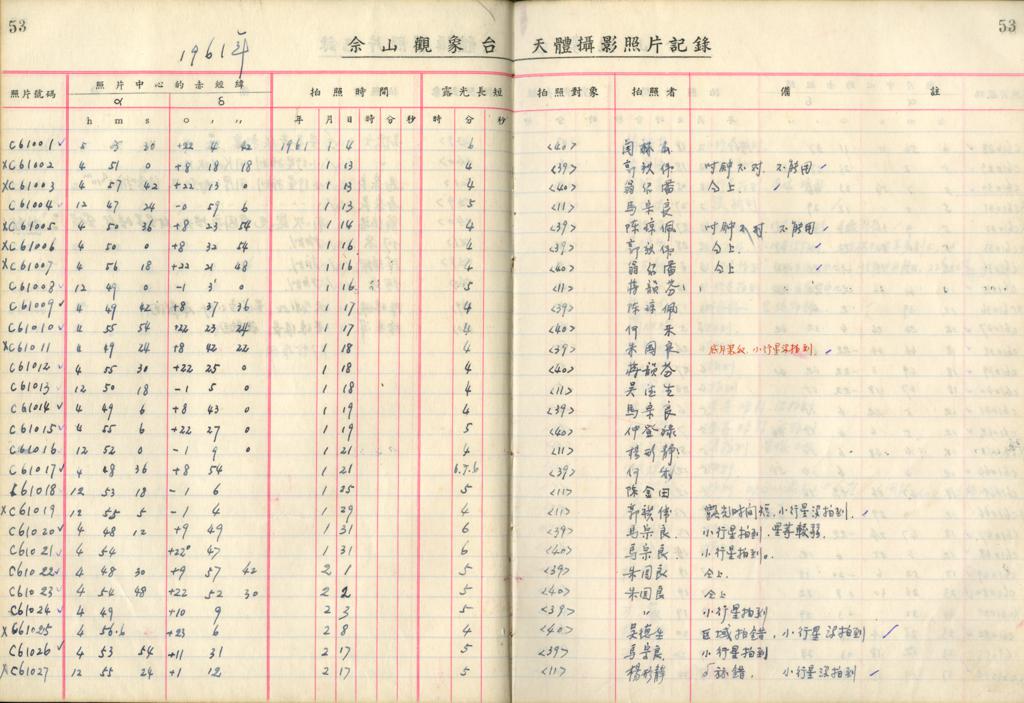 53
53
1961年
佘山觀象台 天體攝影照片記錄
照片號碼 照片中心的赤經緯 拍照時間 露光長短 拍照對象 拍照者 備 註
α δ
h m s o , ,, 年 月 日 時 分 秒 時 分 秒
C61001 5 30 +22 4 42 1961 1 4 6 <40>
XC61002 4 51 0 +8 18 18 1 13 4 <39> 郭秩伟 时钟不对.不能用
XC61003 4 57 42 +22 13 0 1 13 4 <40> 仝上.
C61004 12 47 24 -0 59 6 1 13 5 <11> 馬宗良
XC61005 4 50 36 +8 23 54 1 14 4 <39> 陈 佩 时钟不对 不能用
XC61006 4 50 0 +8 32 54 1 16 4 <39> 郭秩伟 仝上
XC61007 4 56 18 +22 21 48 1 16 4 <40> 仝上
C61008 12 49 0 -1 3 0 1 16 5 <11> 蒋 芬
C61009 4 49 42 +8 37 36 1 17 4 <39> 陈 佩
C61010 4 55 54 +22 23 24 1 17 4 <40> 何
XC61011 4 49 24 +8 42 22 1 18 4 <39> 朱國良 小行星没拍到
C61012 4 55 30 +22 25 0 1 18 4 <40> 蒋 芬
C61013 12 50 18 -1 5 0 1 18 4 <11> 吴 生
C61014 4 49 6 +8 43 0 1 19 4 <39> 馬宗良
C61015 4 55 6 +22 27 0 1 19 5 <40> 仲登禄
C61016 12 52 0 -1 9 0 1 21 4 <11> 楊 静
C61017 4 48 36 +8 54 1 21 6.7.6 <39> 何
C61018 12 53 18 -1 6 1 25 5 <11> 陈金田
XC61019 12 55 5 -1 4 1 29 4 <11> 郭秩伟 露光时间短.小行星没拍到.
C61020 4 48 12 +9 49 1 31 6 <39> 馬宗良. 小行星拍到. 星等較弱.
C61021 4 54 +22° 47 1 31 6 <40> 馬宗良. 小行星拍到。
C61022 4 48 30 +9 57 42 2 1 5 <39> 朱国良 仝上.
C61023 4 54 48 +22 52 30 2 2 5 <40> 朱国良 仝上
C61024 4 49 +10 9 2 3 5 <39> " 小行星拍到
XC61025 4 56.6 +23 6 2 8 4 <40> 吴 生 区域拍錯, 小行星没拍到
C61026 4 53 54 +11 31 2 17 5 <39> 馬宗良. 小行星拍到
XC61027 12 55 24 +1 12 2 17 5 <11> 楊 静 錯. 小行星没拍到